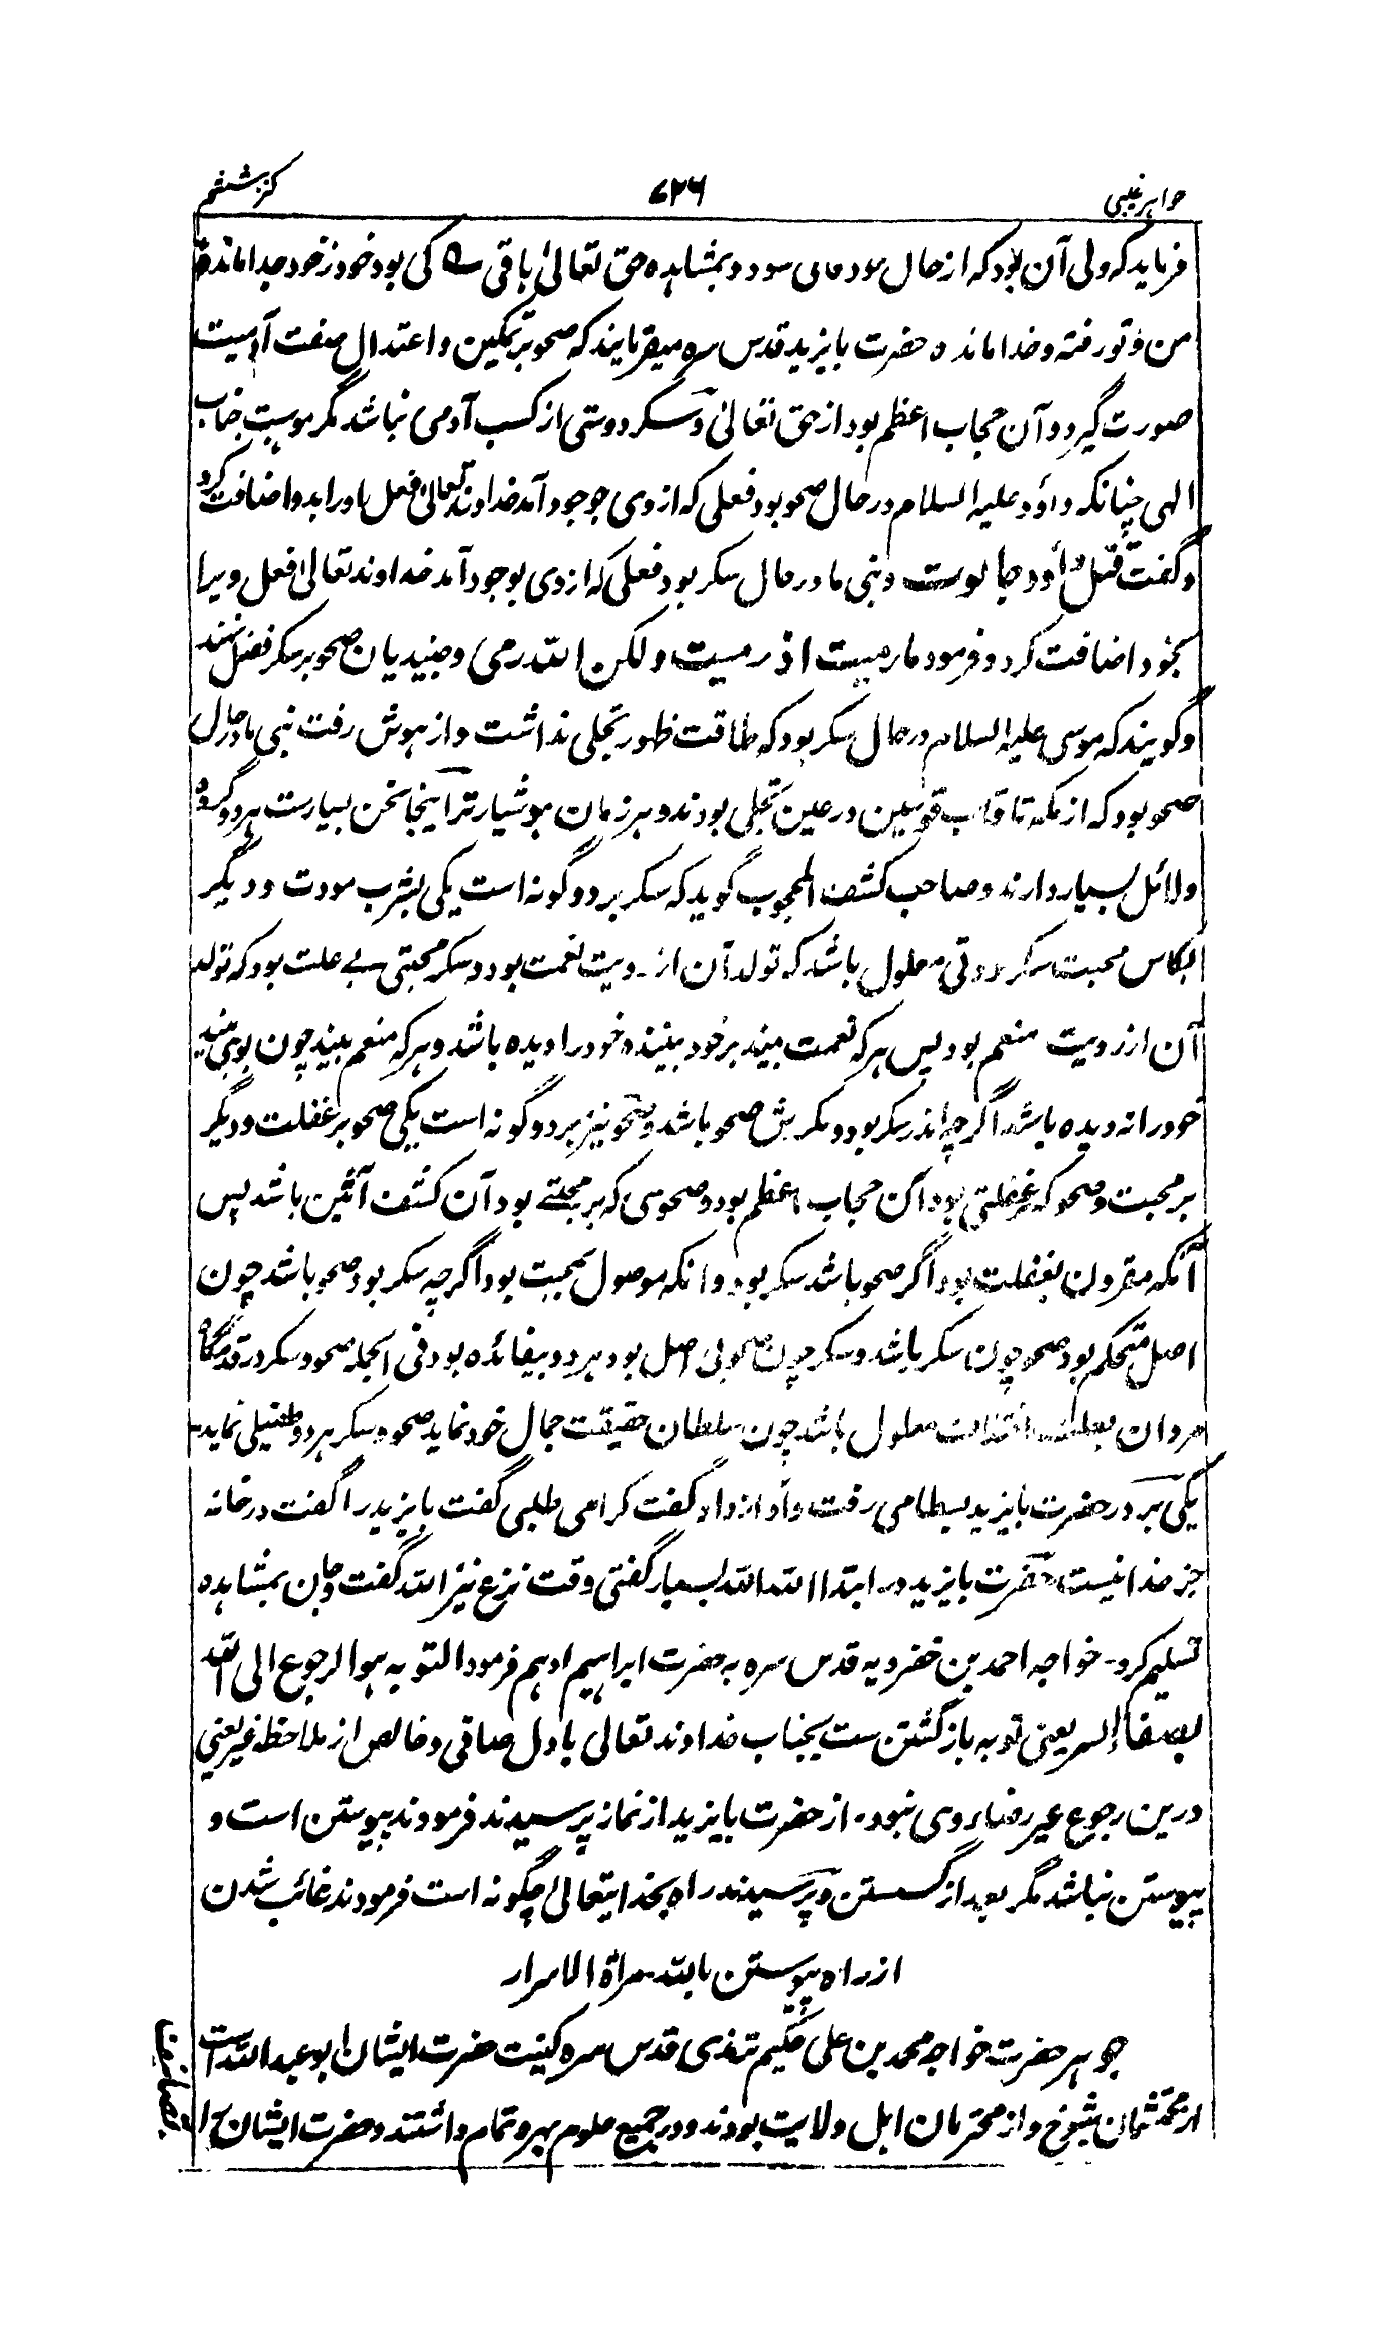 جواہر غیبی ۷۲۶ کنز ششم
فرماید که ولی آن بود که از حال خود فانی بود و بمشاهده حق تعالیٰ باقی ے کی بود خود ز خود جدا مانده
من و تو رفته و خدا مانده حضرت بایزید قدس سره میفرمایند که صحو بر تمکین و اعتدال صفت آدمیت
صورت گیرد و آن حجاب اعظم بود از حق تعالیٰ و سکر دوستی از کسب آدمی نباشد مگر موهبت جناب
الهی چنانکه داؤد علیه السلام در حال صحو بود فعلی که از وی بوجود آمد خداوند تعالیٰ فعل او را بدو اضافت کرد
و گفت قتل داؤد جالوت و نبی ما در حال سکر بود فعلی که از وی بوجود آمد خداوند تعالیٰ فعل ویرا
بخود اضافت کرد و فرمود ما رمیت اذ رمیت ولکن الله رمی و جنیدیان صحو بر سکر فضل نهند
و گویند که موسی علیه السلام در حال سکر بود که طاقت ظهور تجلی نداشت و از هوش رفت نبی ما در حال
صحو بود که از مکه تا قاب قوسین در عین تجلی بودند و هر زمان هوشیارتر اینجا سخن بسیارست هر دو گروه
دلائل بسیار دارند و صاحب کشف المحجوب گوید که سکر بر دو گونه است یکی بشرب مودت و دیگر
بکاس محبت سکر مودتی معلول باشد که تولد آن از رویت نعمت بود و سکر محبتی بے علت بود که تولد
آن از رویت منعم بود پس هر که نعمت بیند بر خود بیند و خود را دیده باشد و هر که منعم بیند چون بوی بیند
خود را نه دیده باشد اگرچه اندر سکر بود و سکرش صحو باشد و صحو نیز بر دو گونه است یکی صحو بر غفلت و دیگر
بر محبت و صحو که غفلتی بود آن حجاب اعظم بود و صحوی که بر محبتے بود آن کشف آئین باشد پس
آنکه مقرون بغفلت بود اگر صحو باشد سکر بود و آنکه موصول بمحبت بود اگرچه سکر بود صحو باشد چون
اصل مستحکم بود صحو چون سکر باشد و سکر چون صحو بی اصل بود هر دو بیفائده بود فی الجمله صحو و سکر در قدمگاه
مردان بعلت اختلاف معلول باشد چون سلطان حقیقت جمال خود نماید صحو و سکر هر دو طفیلی نماید
یکی بر در حضرت بایزید بسطامی رفت و آواز داد گفت کرا می طلبی گفت بایزید را گفت در خانه
جز خدا نیست حضرت بایزید در ابتدا الله الله بسیار گفتی وقت نزع نیز الله گفت و جان بمشاهده
تسلیم کرد۔ خواجه احمد بن خضرویه قدس سره به حضرت ابراهیم ادهم فرمود التوبه هوا لرجوع الی الله
بصفاء السر یعنی توبه بازگشتن ست بجناب خداوند تعالی بادل صافی و خالص از ملاحظه غیر یعنی
درین رجوع غیر رضاء وی نبود۔ از حضرت بایزید از نماز پرسیدند فرمودند پیوستن است و
پیوستن نباشد مگر بعد از گسستن و پرسیدند راه بخدا یتعالیٰ چگونه است فرمودند غائب شدن
از راه پیوستن بالله۔ مرأة الاسرار
جوهر حضرت خواجه محمد بن علی حکیم ترمذی قدس سره کنیت حضرت ایشان ابو عبدالله است
از محتشمان شیوخ و از محترمان اهل ولایت بودند و در جمیع علوم بهره تمام داشتند و حضرت ایشان را